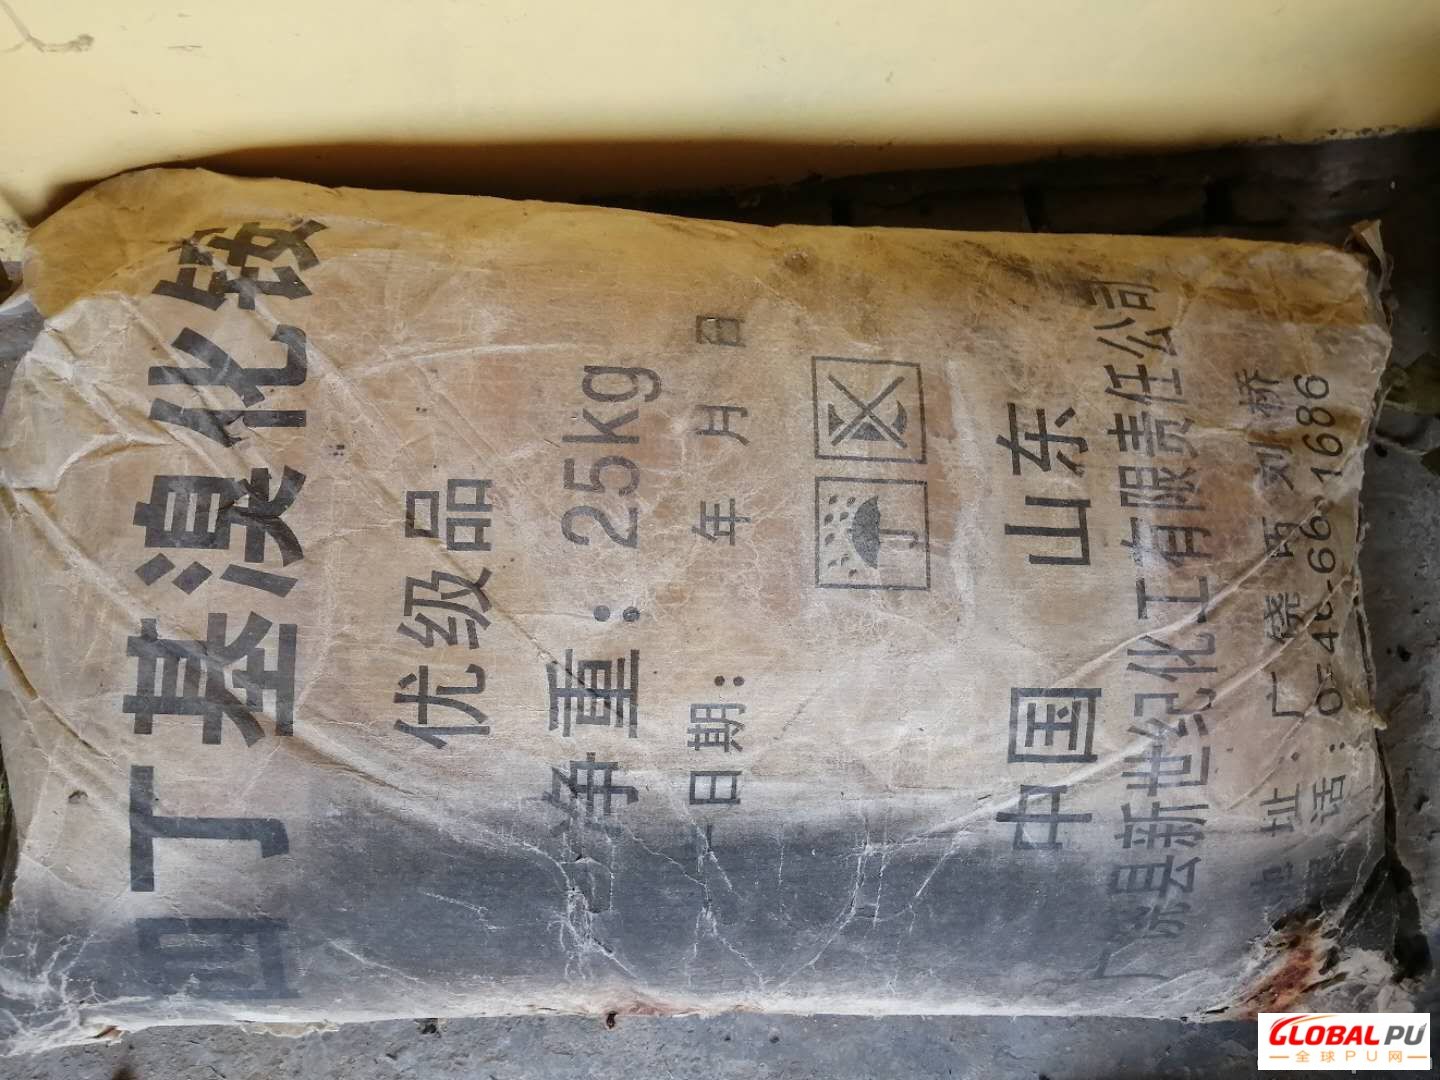 四丁基溴化铵
优级品
净重：25kg
日期： 年 月 日
中国 山东
广饶县新世纪化工有限责任公司
地址：广饶 刘桥
话：
GLOBAL PU
全球PU网